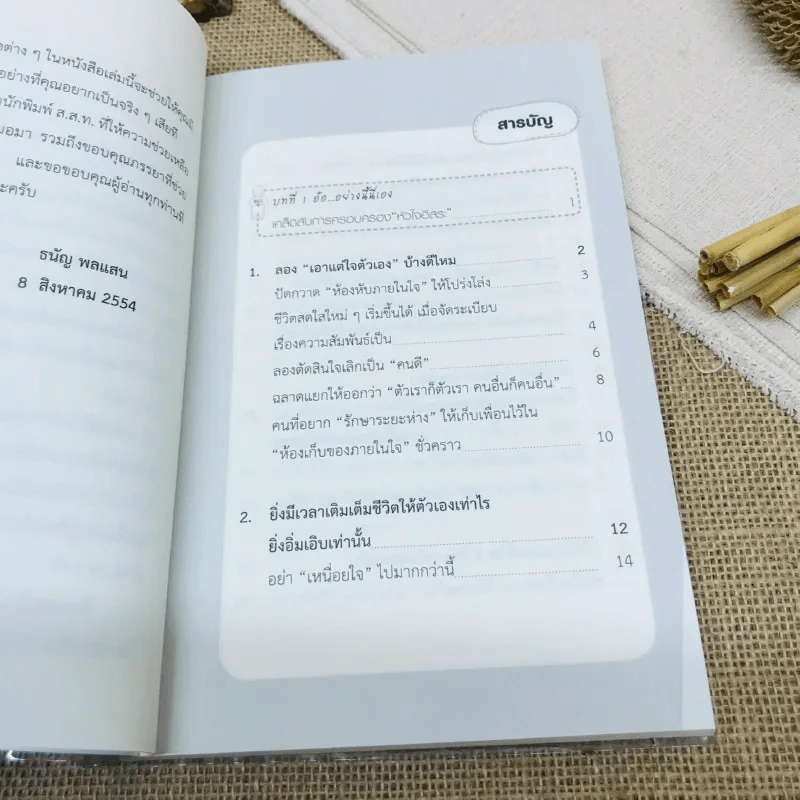 ต่าง ๆ ในหนังสือเล่มนี้จะช่วยให้คุณมี
อย่างที่คุณอยากเป็นจริง ๆ เสียที
นักพิมพ์ ส.ส.ท. ที่ให้ความช่วยเหลือ
มอมา รวมถึงขอบคุณภรรยาที่ช่วย
และขอขอบคุณผู้อ่านทุกท่านที่
ะครับ
ธนัญ พลแสน
8 สิงหาคม 2554
สารบัญ
บทที่ 1 อ๋อ...อย่างนี้นี่เอง
เคล็ดลับการครอบครอง "หัวใจอิสระ" 1
1. ลอง "เอาแต่ใจตัวเอง" บ้างดีไหม 2
ปัดกวาด "ห้องหับภายในใจ" ให้โปร่งโล่ง 3
ชีวิตสดใสใหม่ ๆ เริ่มขึ้นได้ เมื่อจัดระเบียบ
เรื่องความสัมพันธ์เป็น 4
ลองตัดสินใจเลิกเป็น "คนดี" 6
ฉลาดแยกให้ออกว่า "ตัวเราก็ตัวเรา คนอื่นก็คนอื่น" 8
คนที่อยาก "รักษาระยะห่าง" ให้เก็บเพื่อนไว้ใน
"ห้องเก็บของภายในใจ" ชั่วคราว 10
2. ยิ่งมีเวลาเติมเต็มชีวิตให้ตัวเองเท่าไร
ยิ่งอิ่มเอิบเท่านั้น 12
อย่า "เหนื่อยใจ" ไปมากกว่านี้ 14